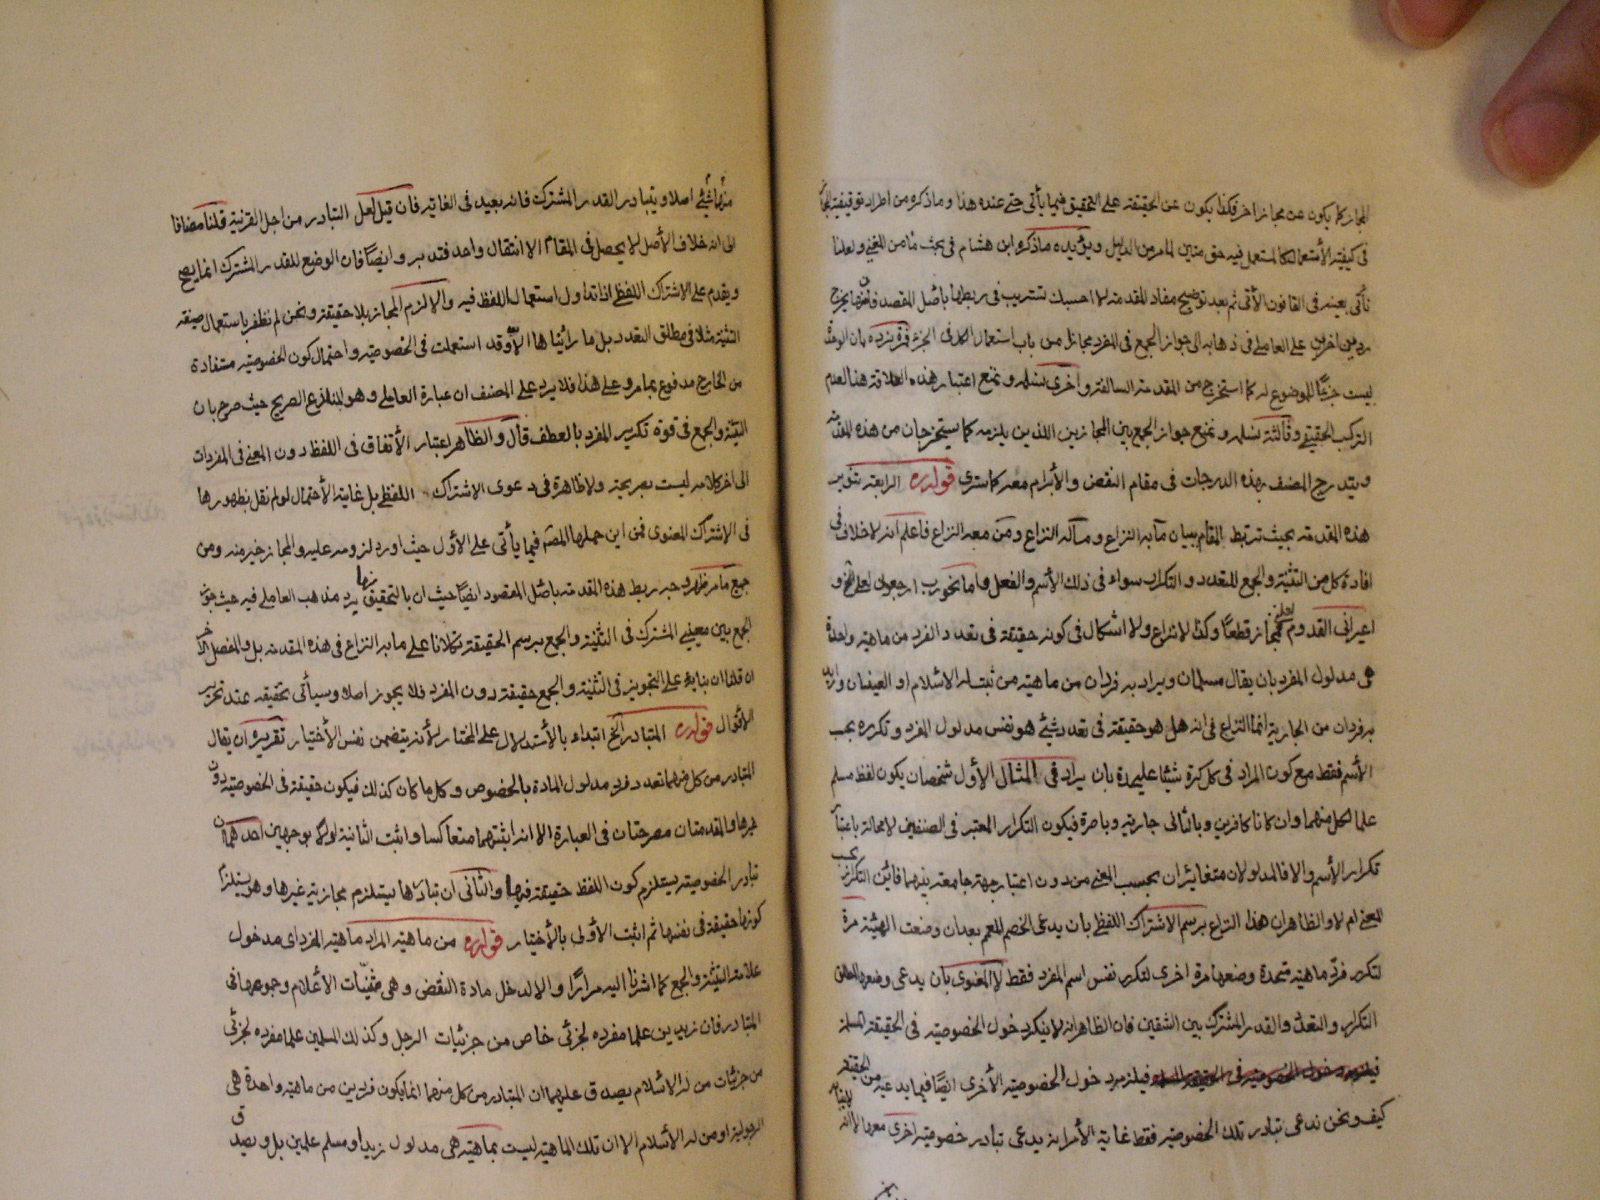 المجاز كما يكون عن مجاز اخر فكذا يكون عن الحقيقة على التحقيق فيما يأتى حتى عنده هذا وما ذكره من اطراد توقيفية
فى كيفية الأستعمال كالمستعمل فيه حق متين لما مر من الدليل ويؤيده ما ذكره ابن هشام فى بحث ما من المغنى ولعلنا
نأتى بعينه فى القانون الأتى ثم بعد توضيح مفاد المقدمة لا احسبك تستريب فى ربطها باصل المقصد
على العاملى فى ذهابه الى جواز الجمع فى المفرد مجازا من باب استعمال الكل فى الجزء فمرة يرده بان الوحدة
ليست جزءًا للموضوع له كما استخرج من المقدمة السالفة واخرى يسلمه ويمنع اعتبار هذه العلاقة هنا لعدم
التركب الحقيقى وثالثة يسلمه ويمنع جواز الجمع بين المجازين اللذين يلزمه كما سيتخرجان من هذه المقدمة
ويتدرج المصنف بهذه الدرجات فى مقام النقض والأبرام معه كما سترى قوله ره الرابعة تنوير
هذه المقدمة بحيث ترتبط بالمقام ببيان ما به النزاع وما له النزاع ومن معه النزاع فاعلم انه لا خلاف فى
افادة كل من التثنية والجمع للتعدد والتكرار سواء فى ذلك الأسم والفعل واما نحو رب ارجعون لعلى الخ و
قطعًا وكذا لا نزاع ولا اشكال فى كونه حقيقة فى تعدد الفرد من ماهية واحدة
هى مدلول المفرد بان يقال مسلمان ويراد به فردان من ماهية من ثبت له الاسلام او العينان واريد
به فردان من الجارية انما النزاع فى انه هل هو حقيقة فى تعدد شئ هو نفس مدلول المفرد وتكرره بحسب
الأسم فقط مع كون المراد فى كل كرة شيئا عليحدة بان يراد فى المثال الأول شخصان يكون لفظ مسلم
علما لكل منهما وان كانا كافرين وبالثانى جارية وباصرة فيكون التكرار المعتبر فى الصنفين لا محالة باعتبار
تكرار الأسم والا فالمدلولان متغايران بحسب المعنى من دون اعتبار جهة جامعة بينهما فاين التكرار بحسب
المعنى ام لا والظاهر ان هذا النزاع برسم الاشتراك اللفظى بان يدعى الخصم للعم بعد ان وضعت الهيئة مرة
لتكرر فرد ماهية متحدة وضعها مرة اخرى لتكرر نفس اسم المفرد فقط لا المعنوى بان يدعى وضعها لمطلق
التكرار والتعدد والقدر المشترك بين الشقين فان الظاهر انه لا ينكر دخول الخصوصية فى الحقيقة المسلمة
فيلزمه دخول الخصوصية الأخرى ايضًا فيما يدعيه من الحقيقة
كيف ونحن ندعى تبادر تلك الخصوصية فقط غاية الأمر انه يدعى تبادر خصوصية اخرى معها لا انه
منهما شئ اصلا ويتبادر القدر المشترك فانه بعيد فى الغاية فان قيل لعل التبادر من اجل القرينة قلنا مضافا
الى انه خلاف الأصل لا يحصل فى المقام الا انتقال واحد فتدبر وايضًا فان الوضع للقدر المشترك انما يصح
ويقدم على الاشتراك اللفظى اذا تداول استعمال اللفظ فيه والا لزم المجاز بلا حقيقة ونحن لم نظفر باستعمال صيغة
التثنية مثلا فى مطلق التعدد بل ما رأيناها الا وقد استعملت فى الخصوصية واحتمال كون الخصوصية مستفادة
من الخارج مدفوع بما مر وعلى هذا فلا يرد على المصنف ان عبارة العاملى وهو المنازع الصريح حيث صرح بان
التثنية والجمع فى قوة تكرير المفرد بالعطف قال والظاهر اعتبار الأتفاق فى اللفظ دون المعنى فى المفردات
الى اخر كلامه ليست بصريحة ولا ظاهرة فى دعوى الاشتراك اللفظى بل غاية الأحتمال لو لم نقل بظهورها
فى الاشتراك المعنوى فمن اين حملها المصنف فيما يأتى على الأول حيث اورد لزومه عليه والمجاز خير منه ومن
جميع ما مر ظهر وجه ربط هذه المقدمة باصل المقصود ايضًا حيث ان بالتحقيق بها يرد مذهب العاملى فيه حيث جوز
الجمع بين معنيى المشترك فى التثنية والجمع برسم الحقيقة تكلانا على ما به النزاع فى هذه المقدمة بل والمفصل الآخر
ان قلنا ان بنائه على التجويز فى التثنية والجمع حقيقة دون المفرد فلا يجوز اصلا وسيأتى تحقيقه عند تحرير
الأقوال قوله ره المتبادر الخ ابتداء بالأستدلال على المختار لأنه يتضمن نفس الأختيار تقريره ان يقال
المتبادر من كل منهما تعدد فرد مدلول المادة بالخصوص وكل ما كان كذلك فيكون حقيقة فى الخصوصية دون
غيرها والمقدمتان مصرحتان فى العبارة الا انه اثبتهما متعاكسا واثبت الثانية اولا بوجهين احدهما ان
تبادر الخصوصية يستلزم كون اللفظ حقيقة فيها والثانى ان تبادرها يستلزم مجازية غيرها وهو يستلزم
كونها حقيقة فى نفسها ثم اثبت الأولى بالأختيار قوله ره من ماهية المراد ماهية المفرد اى مدخول
علامة التثنية والجمع كما اشرنا اليه مرارًا والا لدخل مادة النقض وهى مثنيات الأعلام وجموعها فى
المتبادر فان زيدين علما مفرده لجزئى خاص من جزئيات الرجل وكذلك المسلمين علما مفرده لجزئى
من جزئيات من له الاسلام يصدق عليهما ان المتبادر من كل منهما انما يكون فردين من ماهية واحدة هى
الرجولية او من له الأسلام الا ان تلك الماهية ليست بماهية هى مدلول زيد او مسلم علمين بل ويصدق